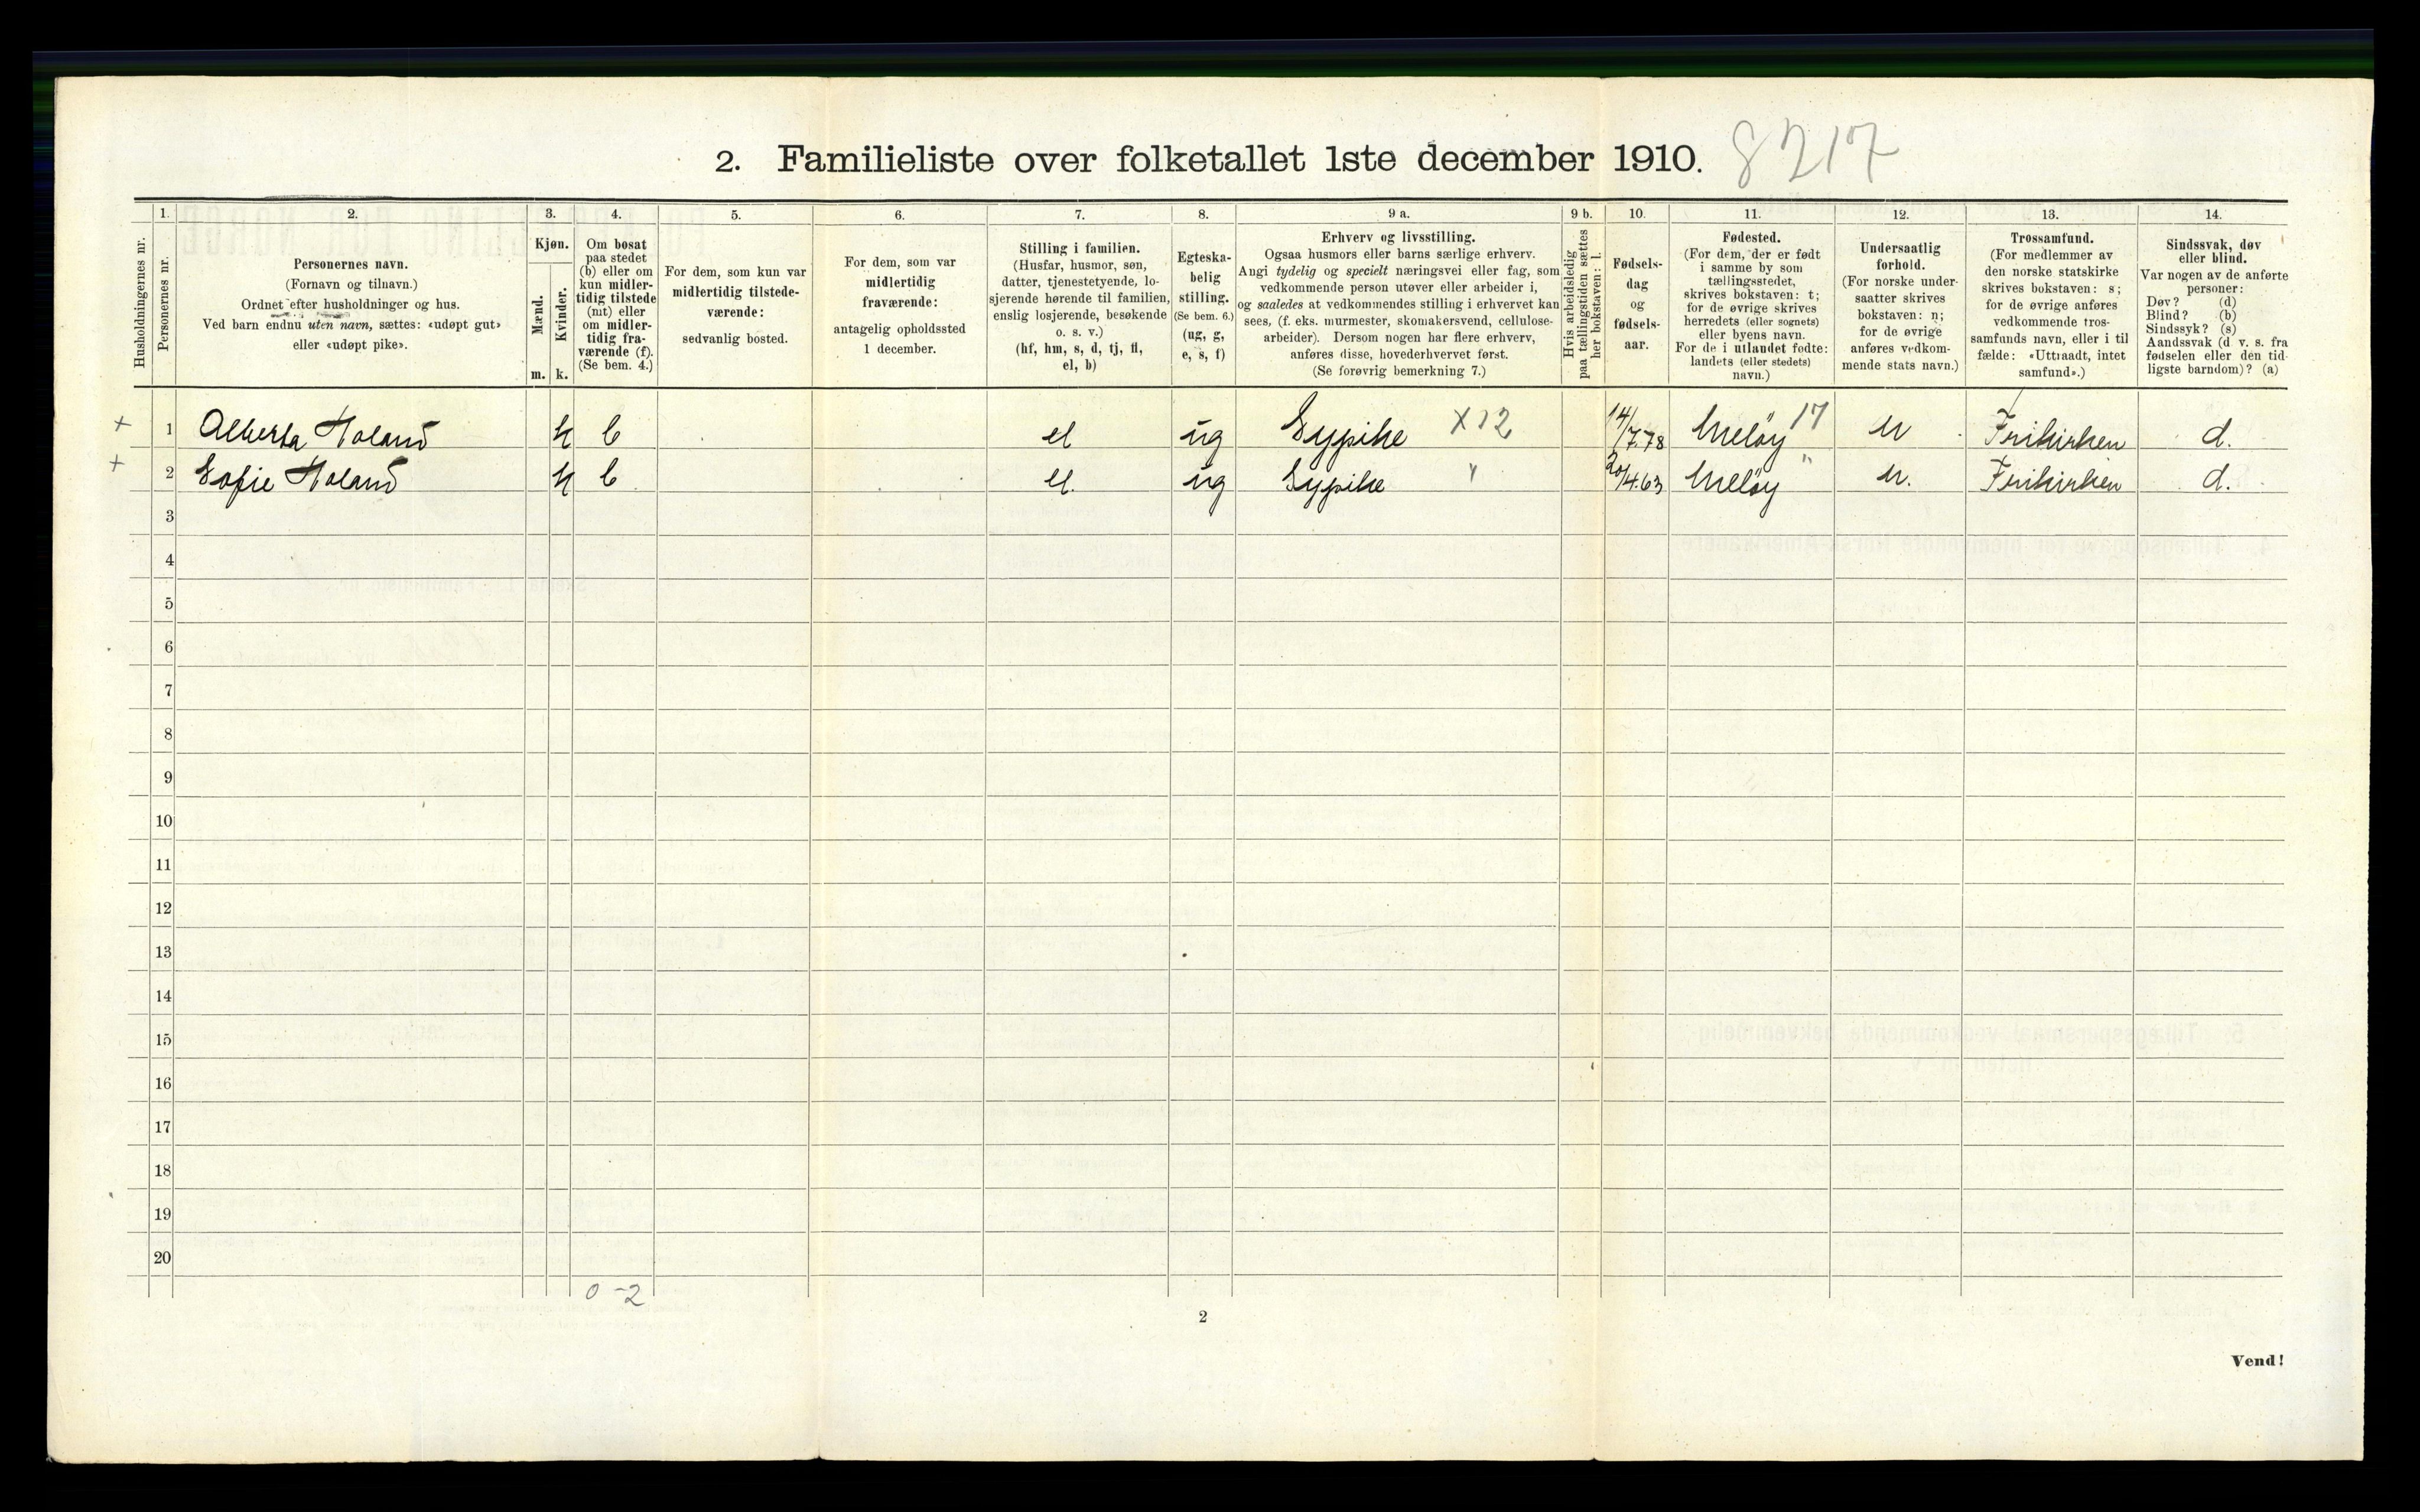 2. Familieliste over folketallet 1ste december 1910. 8217
1. 2. 3. 4. 5. 6. 7. 8. 9 a. 9 b. 10. 11. 12. 13. 14.
Husholdningernes nr.
Personernes nr.
Personernes navn.
(Fornavn og tilnavn.)
Ordnet efter husholdninger og hus.
Ved barn endnu uten navn, sættes: «udøpt gut»
eller «udøpt pike».
Kjøn.
Mænd.
Kvinder.
m. k.
Om bosat
paa stedet
(b) eller om
kun midler-
tidig tilstede
(mt) eller
om midler-
tidig fra-
værende (f).
(Se bem. 4.)
For dem, som kun var
midlertidig tilstede-
værende:
sedvanlig bosted.
For dem, som var
midlertidig
fraværende:
antagelig opholdssted
1 december.
Stilling i familien.
(Husfar, husmor, søn,
datter, tjenestetyende, lo-
sjerende hørende til familien,
enslig losjerende, besøkende
o. s. v.)
(hf, hm, s, d, tj, fl,
el, b)
Egteska-
belig
stilling.
(Se bem. 6.)
(ug, g,
e, s, f)
Erhverv og livsstilling.
Ogsaa husmors eller barns særlige erhverv.
Angi tydelig og specielt næringsvei eller fag, som
vedkommende person utøver eller arbeider i,
og saaledes at vedkommendes stilling i erhvervet kan
sees, (f. eks. murmester, skomakersvend, cellulose-
arbeider). Dersom nogen har flere erhverv,
anføres disse, hovederhvervet først.
(Se forøvrig bemerkning 7.)
Hvis arbeidsledig
paa tællingstiden sættes
her bokstaven: l.
Fødsels-
dag
og
fødsels-
aar.
Fødested.
(For dem, der er født
i samme by som
tællingsstedet,
skrives bokstaven: t;
for de øvrige skrives
herredets (eller sognets)
eller byens navn.
For de i utlandet fødte:
landets (eller stedets)
navn.)
Undersaatlig
forhold.
(For norske under-
saatter skrives
bokstaven: n;
for de øvrige
anføres vedkom-
mende stats navn.)
Trossamfund.
(For medlemmer av
den norske statskirke
skrives bokstaven: s;
for de øvrige anføres
vedkommende tros-
samfunds navn, eller i til
fælde: «Uttraadt, intet
samfund».)
Sindssvak, døv
eller blind.
Var nogen av de anførte
personer:
Døv? (d)
Blind? (b)
Sindssyk? (s)
Aandssvak (d. v. s. fra
fødselen eller den tid-
ligste barndom)? (a)
+ 1 Alberta Holand k b el ug Sypike X12 14/7.78 Meløy 17 n Frikirken d.
+ 2 Sofie Holand k b el. ug Sypike " 20/4.63 Meløy " n. Frikirken d.
3
4
5
6
7
8
9
10
11
12
13
14
15
16
17
18
19
20
0-2
2
Vend!